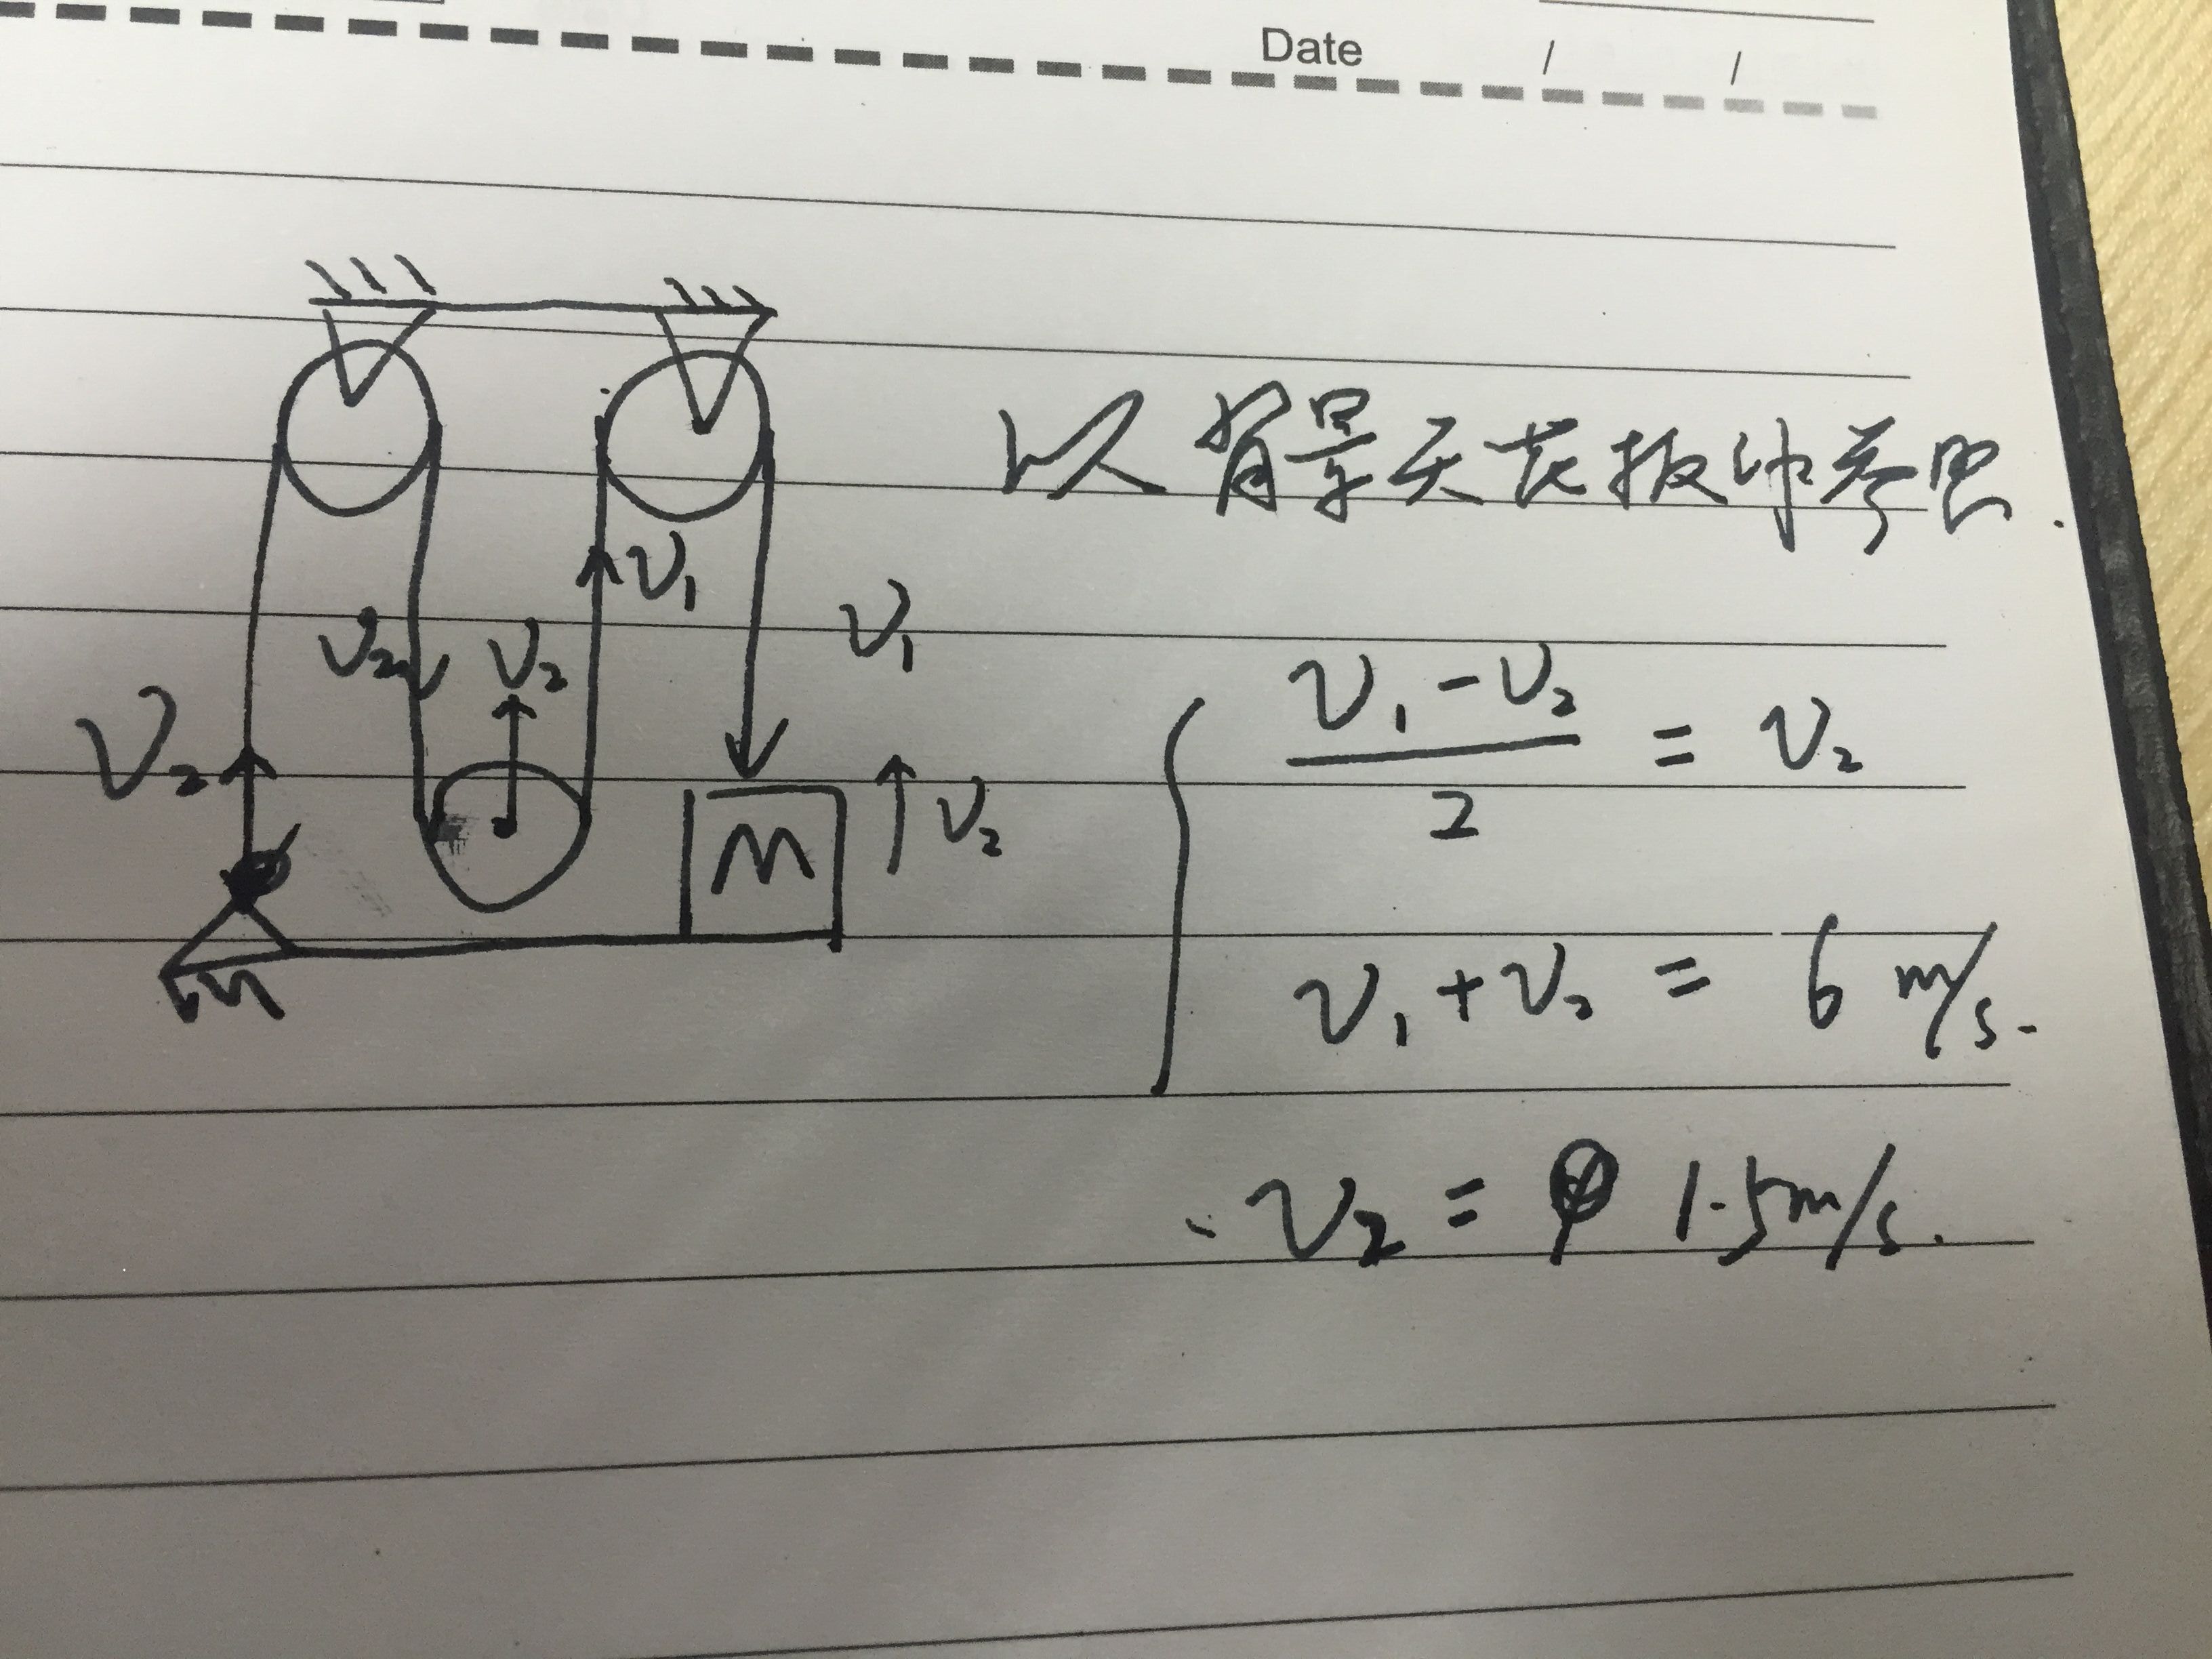 Date / /
以背景天花板作参照.
V₁
V₁
V₂
V₂
V₂
V₂
M
(V₁ - V₂)/2 = V₂
V₁ + V₂ = 6 m/s.
V₂ = 1.5m/s.